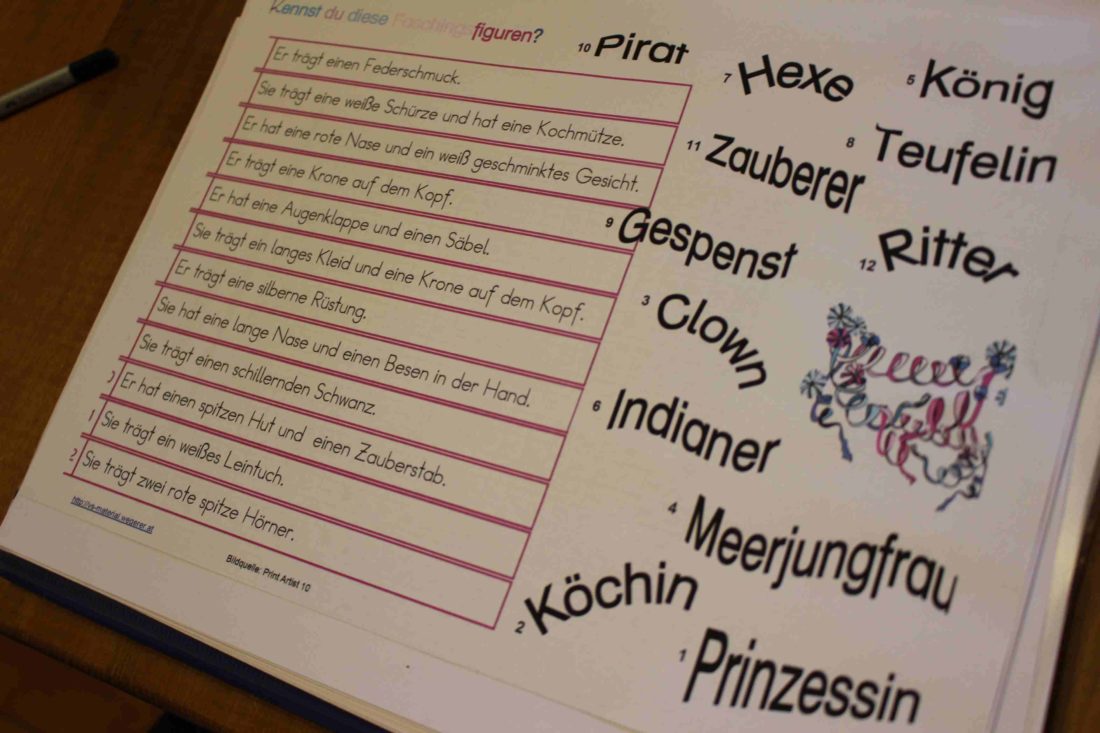 Kennst du diese Faschingsfiguren?
Er trägt einen Federschmuck.
Sie trägt eine weiße Schürze und hat eine Kochmütze.
Er hat eine rote Nase und ein weiß geschminktes Gesicht.
Er trägt eine Krone auf dem Kopf.
Er hat eine Augenklappe und einen Säbel.
Sie trägt ein langes Kleid und eine Krone auf dem Kopf.
Er trägt eine silberne Rüstung.
Sie hat eine lange Nase und einen Besen in der Hand.
Sie trägt einen schillernden Schwanz.
Er hat einen spitzen Hut und einen Zauberstab.
1 Sie trägt ein weißes Leintuch.
2 Sie trägt zwei rote spitze Hörner.
http://vs-material.wegerer.at
Bildquelle: Print Artist 10
10 Pirat
7 Hexe
5 König
11 Zauberer
8 Teufelin
9 Gespenst
12 Ritter
3 Clown
6 Indianer
4 Meerjungfrau
2 Köchin
1 Prinzessin